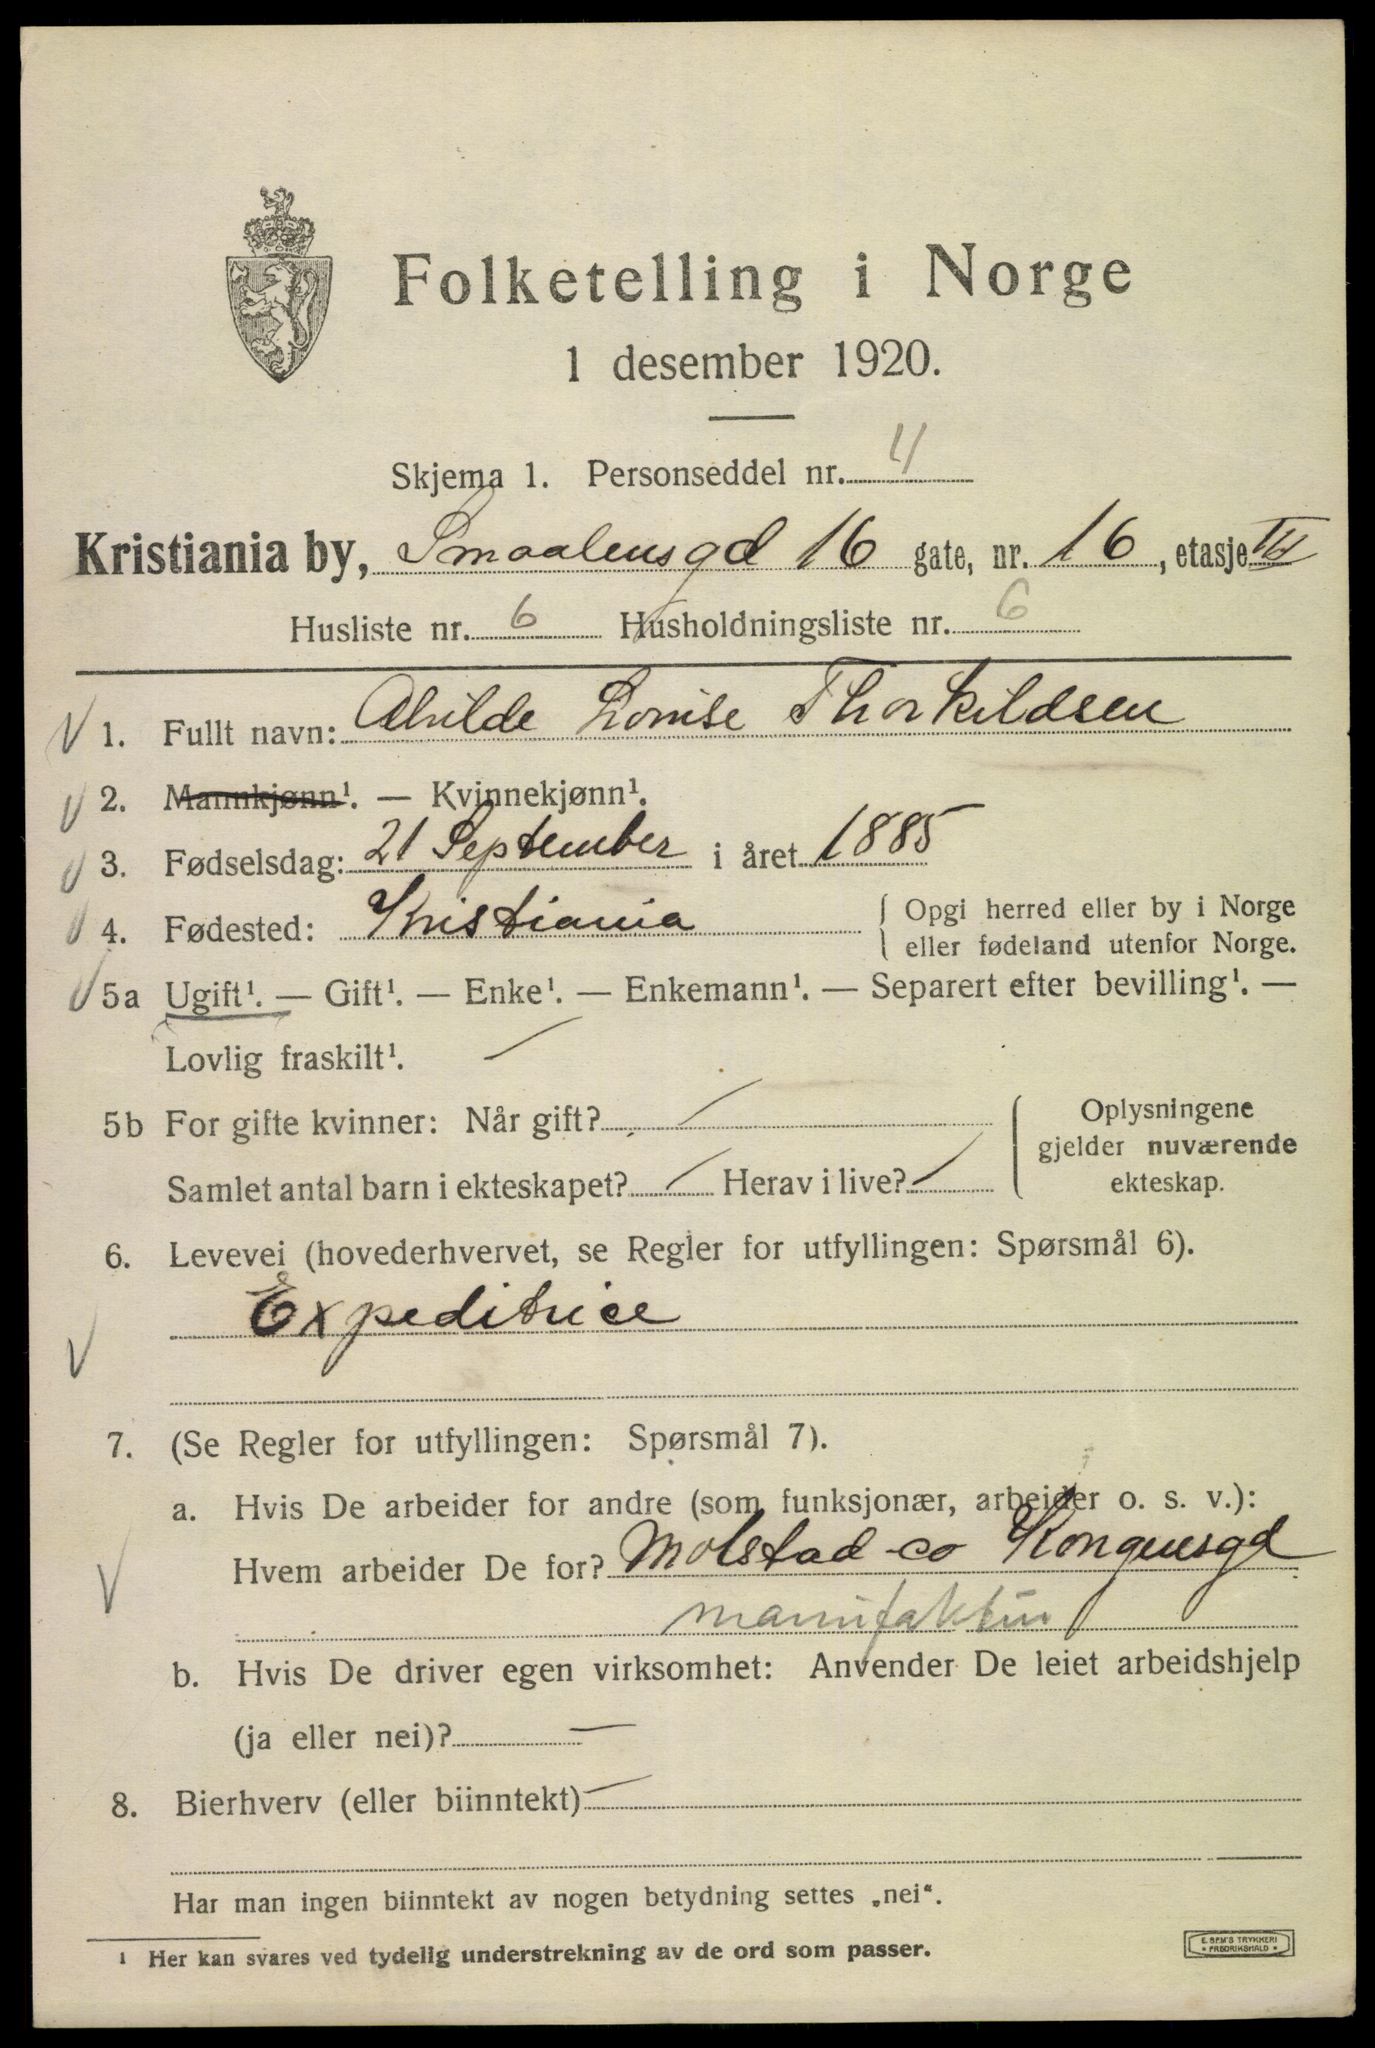 Folketelling i Norge
1 desember 1920.
Skjema 1. Personseddel nr. 4
Kristiania by, Smaalensgd 16 gate, nr. 16, etasje III
Husliste nr. 6 Husholdningsliste nr. 6
1. Fullt navn: Alvilde Louise Thorkildsen
2. Mannkjønn¹. — Kvinnekjønn¹.
3. Fødselsdag: 21 September i året 1885
4. Fødested: Kristiania { Opgi herred eller by i Norge
eller fødeland utenfor Norge.
5a Ugift¹. — Gift¹. — Enke¹. — Enkemann¹. — Separert efter bevilling¹. —
Lovlig fraskilt¹. —
5b For gifte kvinner: Når gift? —
Samlet antal barn i ekteskapet? — Herav i live? —
Oplysningene
gjelder nuværende
ekteskap.
6. Levevei (hovederhvervet, se Regler for utfyllingen: Spørsmål 6).
Expeditrice
7. (Se Regler for utfyllingen: Spørsmål 7).
a. Hvis De arbeider for andre (som funksjonær, arbeider o. s. v.):
Hvem arbeider De for? Molstad co Kongensgd
manufaktur
b. Hvis De driver egen virksomhet: Anvender De leiet arbeidshjelp
(ja eller nei)? —
8. Bierhverv (eller biinntekt) —
Har man ingen biinntekt av nogen betydning settes „nei“.
¹ Her kan svares ved tydelig understrekning av de ord som passer.
E. SEM'S TRYKKERI
• FREDRIKSHALD •